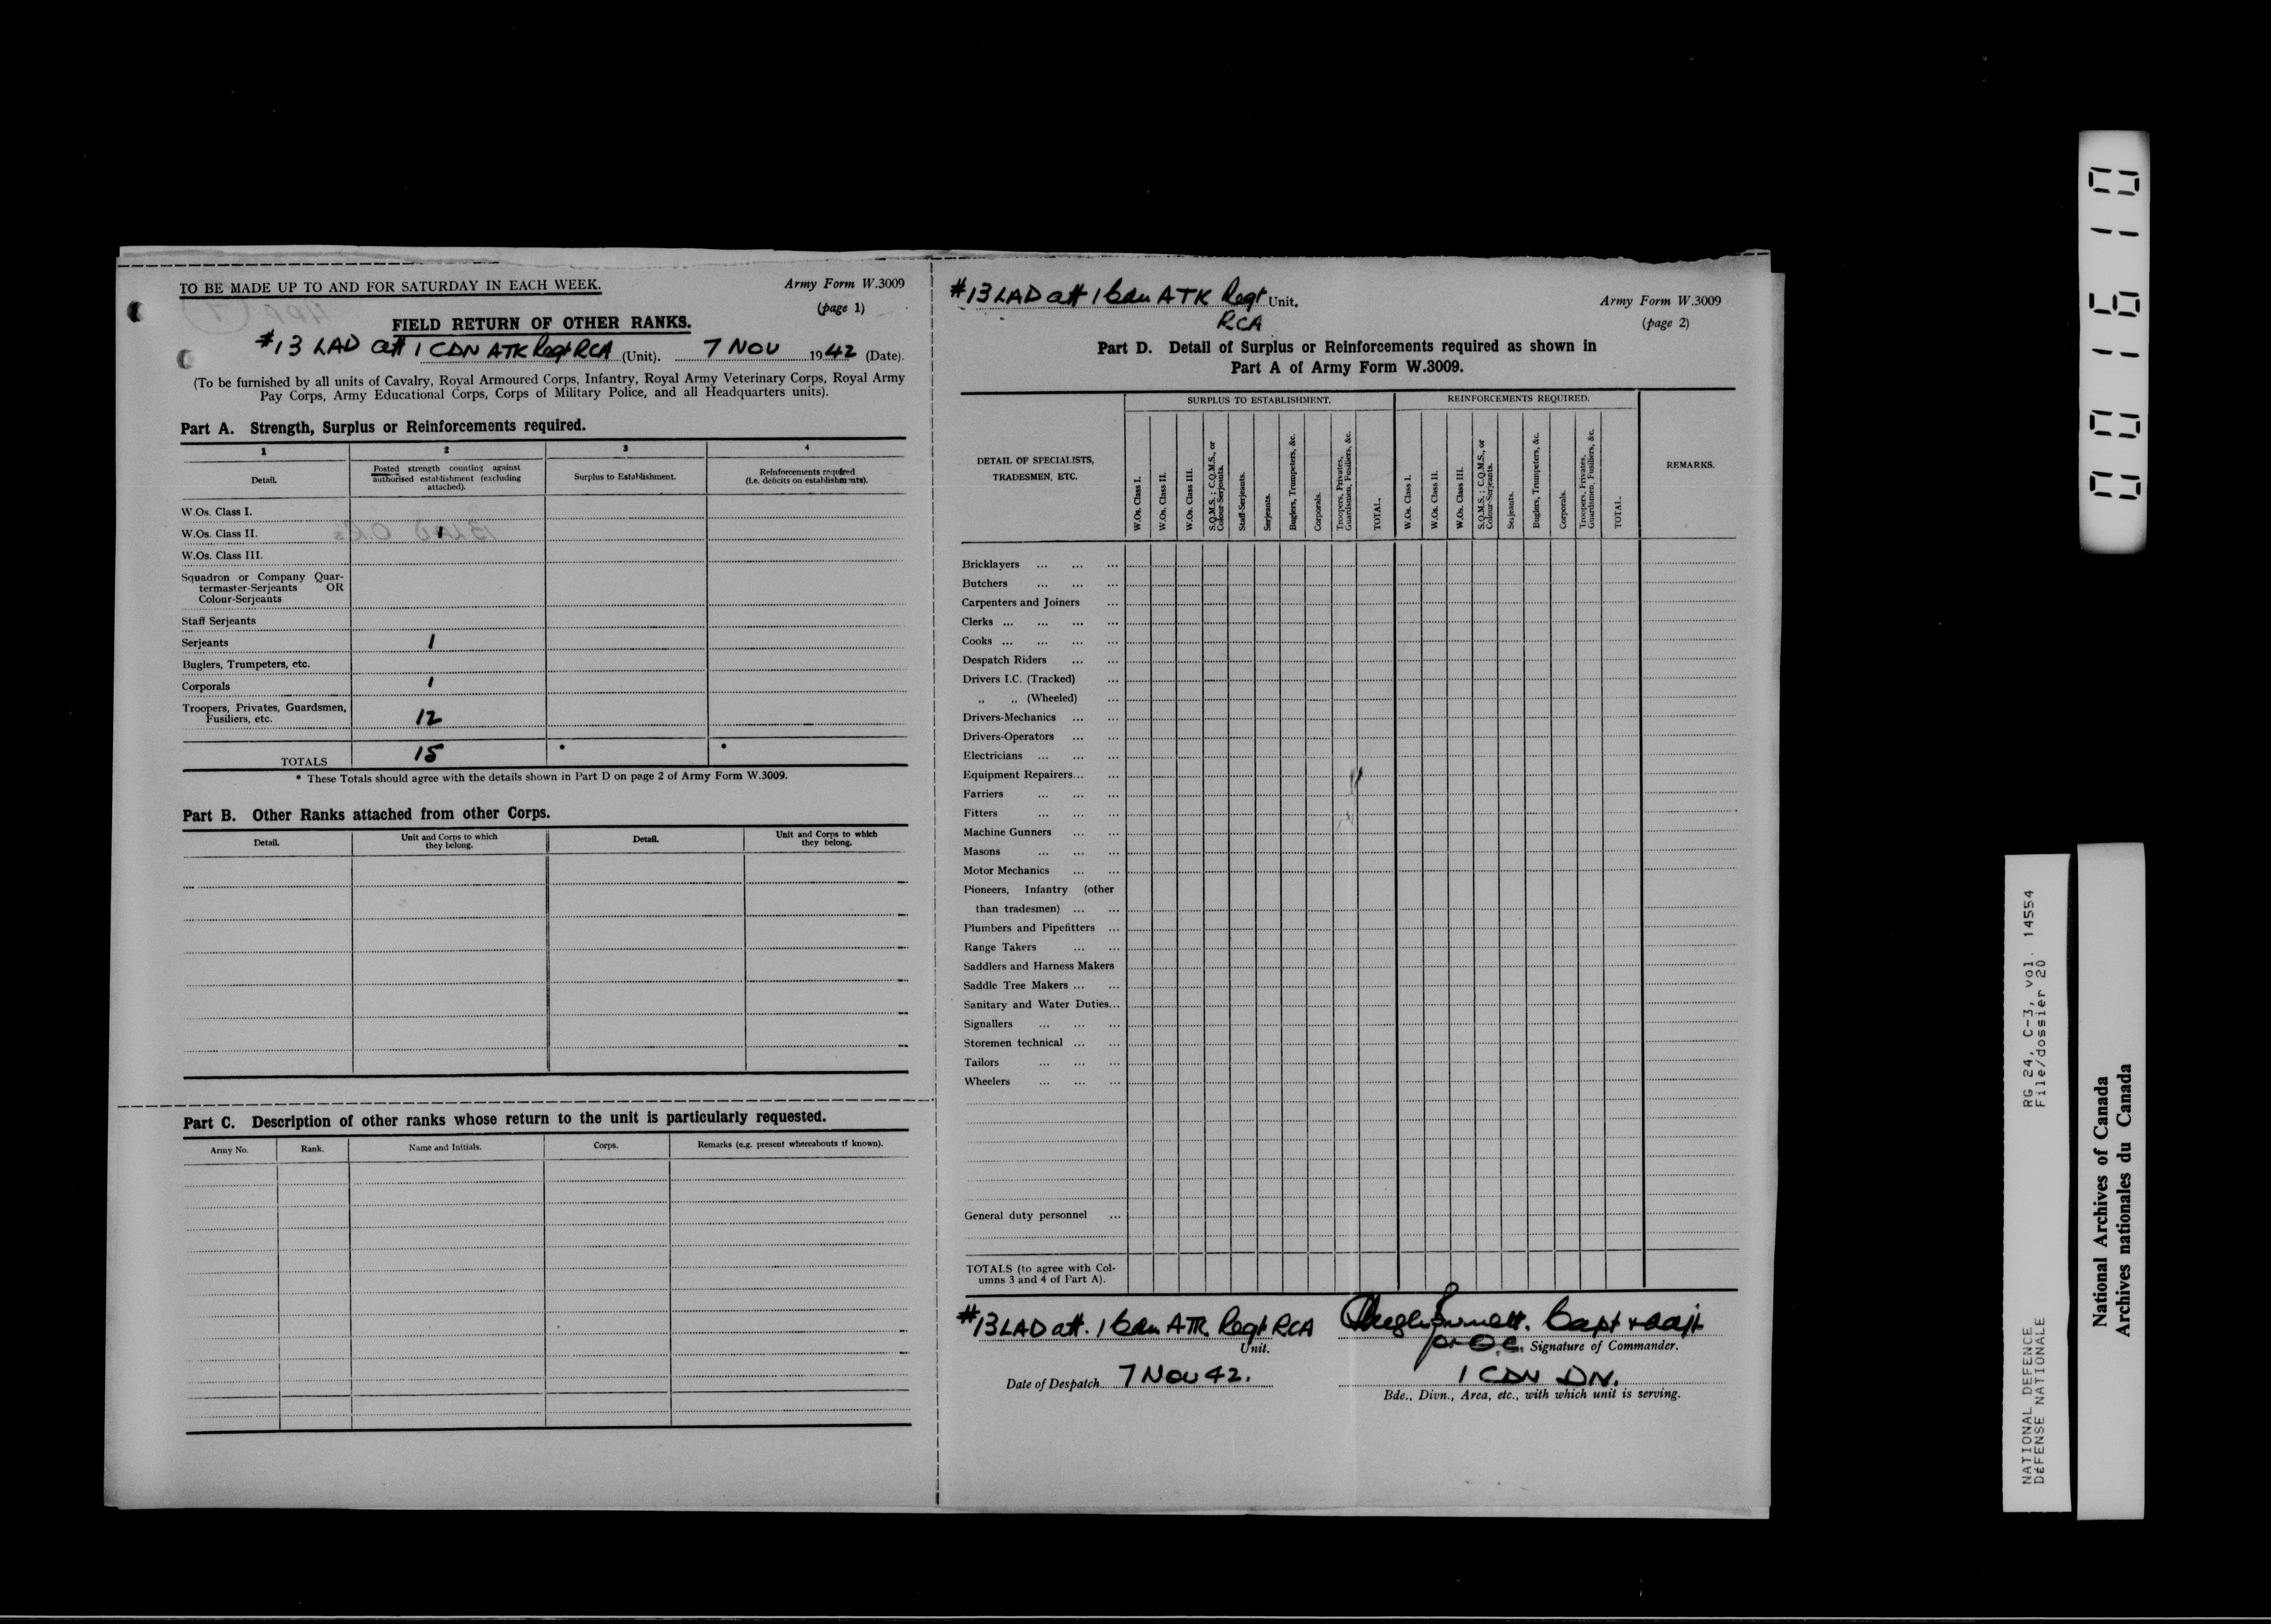 TO BE MADE UP TO AND FOR SATURDAY IN EACH WEEK.
Army Form W.3009
(page 1)
FIELD RETURN OF OTHER RANKS.
#13 LAD att 1 CDN ATK Regt RCA (Unit). 7 NOV 1942 (Date).
(To be furnished by all units of Cavalry, Royal Armoured Corps, Infantry, Royal Army Veterinary Corps, Royal Army
Pay Corps, Army Educational Corps, Corps of Military Police, and all Headquarters units).
Part A. Strength, Surplus or Reinforcements required.
1 2 3 4
Detail. Posted strength counting against authorised establishment (excluding attached). Surplus to Establishment. Reinforcements required (i.e. deficits on establishments).
W.Os. Class I.
W.Os. Class II. 1
W.Os. Class III.
Squadron or Company Quar-
termaster-Serjeants OR
Colour-Serjeants
Staff Serjeants
Serjeants 1
Buglers, Trumpeters, etc.
Corporals 1
Troopers, Privates, Guardsmen,
Fusiliers, etc. 12
TOTALS 15 * *
* These Totals should agree with the details shown in Part D on page 2 of Army Form W.3009.
Part B. Other Ranks attached from other Corps.
Detail. Unit and Corps to which they belong. Detail. Unit and Corps to which they belong.
Part C. Description of other ranks whose return to the unit is particularly requested.
Army No. Rank. Name and Initials. Corps. Remarks (e.g. present whereabouts if known).
#13 LAD att 1 Cdn ATK Regt Unit.
RCA
Army Form W.3009
(page 2)
Part D. Detail of Surplus or Reinforcements required as shown in
Part A of Army Form W.3009.
DETAIL OF SPECIALISTS, TRADESMEN, ETC.
SURPLUS TO ESTABLISHMENT.
REINFORCEMENTS REQUIRED.
REMARKS.
W.Os. Class I.
W.Os. Class II.
W.Os. Class III.
S.Q.M.S.; C.Q.M.S., or Colour-Serjeants.
Staff-Serjeants.
Serjeants.
Buglers, Trumpeters, &c.
Corporals.
Troopers, Privates, Guardsmen, Fusiliers, &c.
TOTAL.
W.Os. Class I.
W.Os. Class II.
W.Os. Class III.
S.Q.M.S.; C.Q.M.S., or Colour-Serjeants.
Serjeants.
Buglers, Trumpeters, &c.
Corporals.
Troopers, Privates, Guardsmen, Fusiliers, &c.
TOTAL.
Bricklayers ... ... ...
Butchers ... ... ...
Carpenters and Joiners ...
Clerks ... ... ... ...
Cooks ... ... ... ...
Despatch Riders ... ...
Drivers I.C. (Tracked) ...
,, ,, (Wheeled) ...
Drivers-Mechanics ... ...
Drivers-Operators ... ...
Electricians ... ... ...
Equipment Repairers... ...
Farriers ... ... ...
Fitters ... ... ...
Machine Gunners ... ...
Masons ... ... ...
Motor Mechanics ... ...
Pioneers, Infantry (other
than tradesmen) ... ...
Plumbers and Pipefitters ...
Range Takers ... ...
Saddlers and Harness Makers
Saddle Tree Makers ... ...
Sanitary and Water Duties...
Signallers ... ... ...
Storemen technical ... ...
Tailors ... ... ...
Wheelers ... ... ...
General duty personnel ...
TOTALS (to agree with Col-
umns 3 and 4 of Part A).
#13 LAD att. 1 Cdn ATK Regt RCA
Unit.
Capt & Adjt
for O.C. Signature of Commander.
Date of Despatch 7 Nov 42.
1 CDN DIV.
Bde., Divn., Area, etc., with which unit is serving.
001610
NATIONAL DEFENCE RG 24, C-3, vol. 14554
DÉFENSE NATIONALE File/dossier 20
National Archives of Canada
Archives nationales du Canada